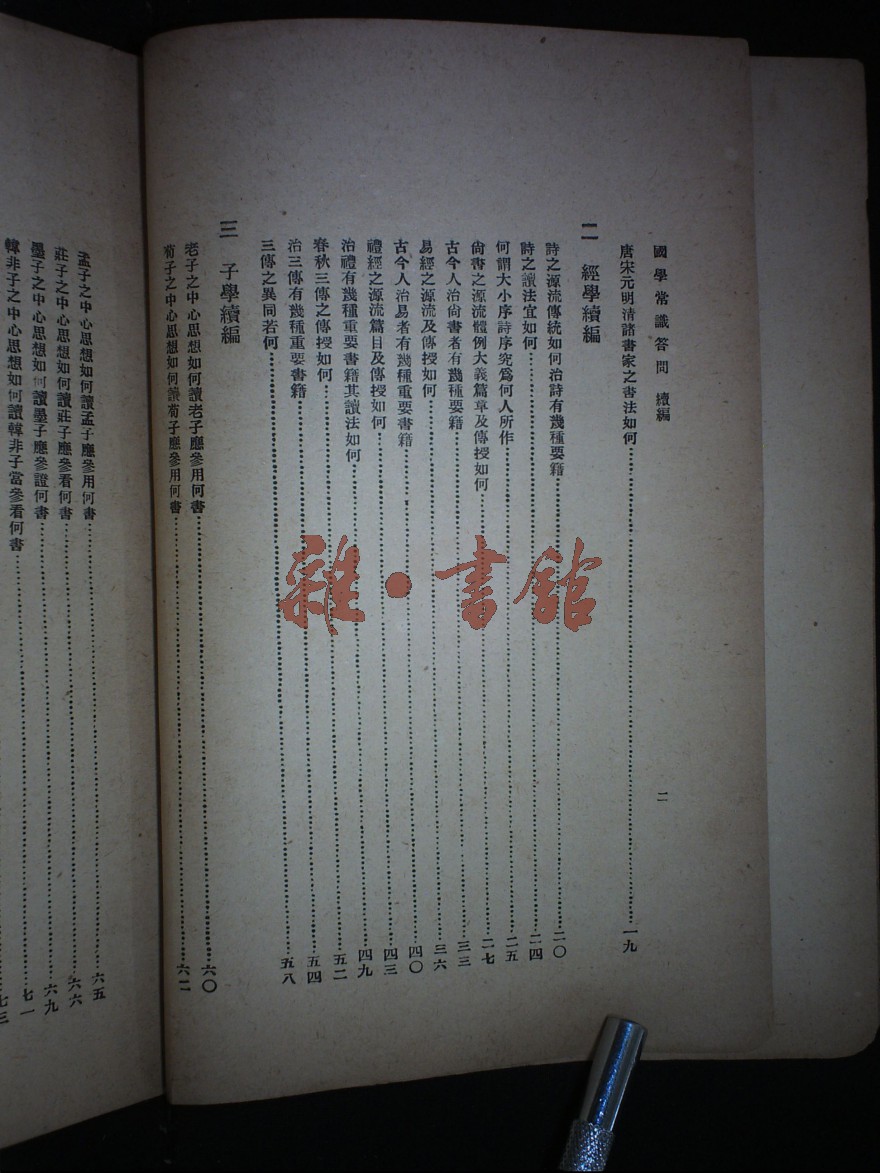 國學常識答問　續編
二
唐宋元明清諸書家之書法如何……一九
二　經學續編
詩之源流傳統如何治詩有幾種要籍……二〇
詩之讀法宜如何……二四
何謂大小序詩序究爲何人所作……二五
尙書之源流體例大義篇章及傳授如何……二七
古今人治尙書者有幾種要籍……三三
易經之源流及傳授如何……三六
古今人治易者有幾種重要書籍……四〇
禮經之源流篇目及傳授如何……四三
治禮有幾種重要書籍其讀法如何……四九
春秋三傳之傳授如何……五二
治三傳有幾種重要書籍……五四
三傳之異同若何……五八
三　子學續編
老子之中心思想如何讀老子應參用何書……六〇
荀子之中心思想如何讀荀子應參用何書……六二
孟子之中心思想如何讀孟子應參用何書……六五
莊子之中心思想如何讀莊子應參看何書……六六
墨子之中心思想如何讀墨子應參證何書……六九
韓非子之中心思想如何讀韓非子當參看何書……七一
七三
雜·書館